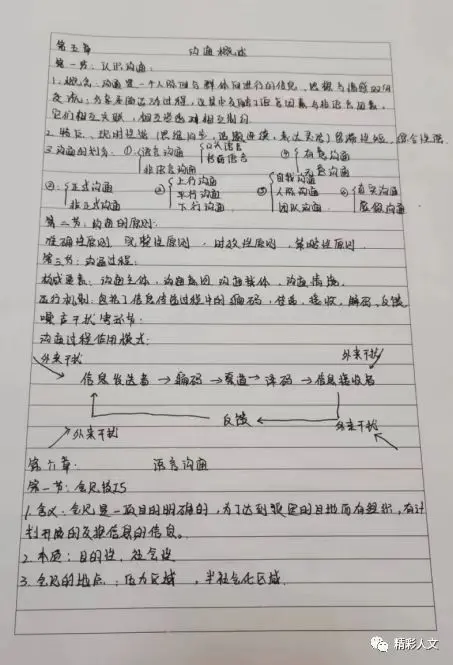 第五章 沟通概述
第一节：认识沟通
1.概念：沟通是一个人际间与群体间进行的信息、思想与情感的
交流；为多方面互动过程，这其中反映了语言因素与非语言因素，
它们相互关联，相互渗透对相互制约
2.特点：现时性强
3.沟通的划分：①语言沟通 口头语言 书面语言 非语言沟通 ④有意沟通 无意沟通
②正式沟通 非正式沟通 上行沟通 平行沟通 下行沟通 自我沟通 人际沟通 团队沟通 真实沟通 虚假沟通
第二节：沟通的原则：
准确性原则 完整性原则，时效性原则，策略性原则
第三节：沟通过程：
构成要素：沟通主体，沟通客体 沟通载体，沟通情境
运行机制：包括了信息传递过程中的编码，传递，接收，解码，反馈
噪声干扰等环节
沟通过程使用模式：
外来干扰 外来干扰
信息发送者→编码→渠道→译码→信息接收者
反馈
外来干扰 外来干扰
第六章： 语言沟通
第一节：会见技巧
1.含义：会见是一项目的明确的，为了达到预定的目地而有组织，有计
划开展的交换信息的信息。
2.本质：目的性，社会性
3.会见的地点：压力区域，半社会化区域
精彩人文